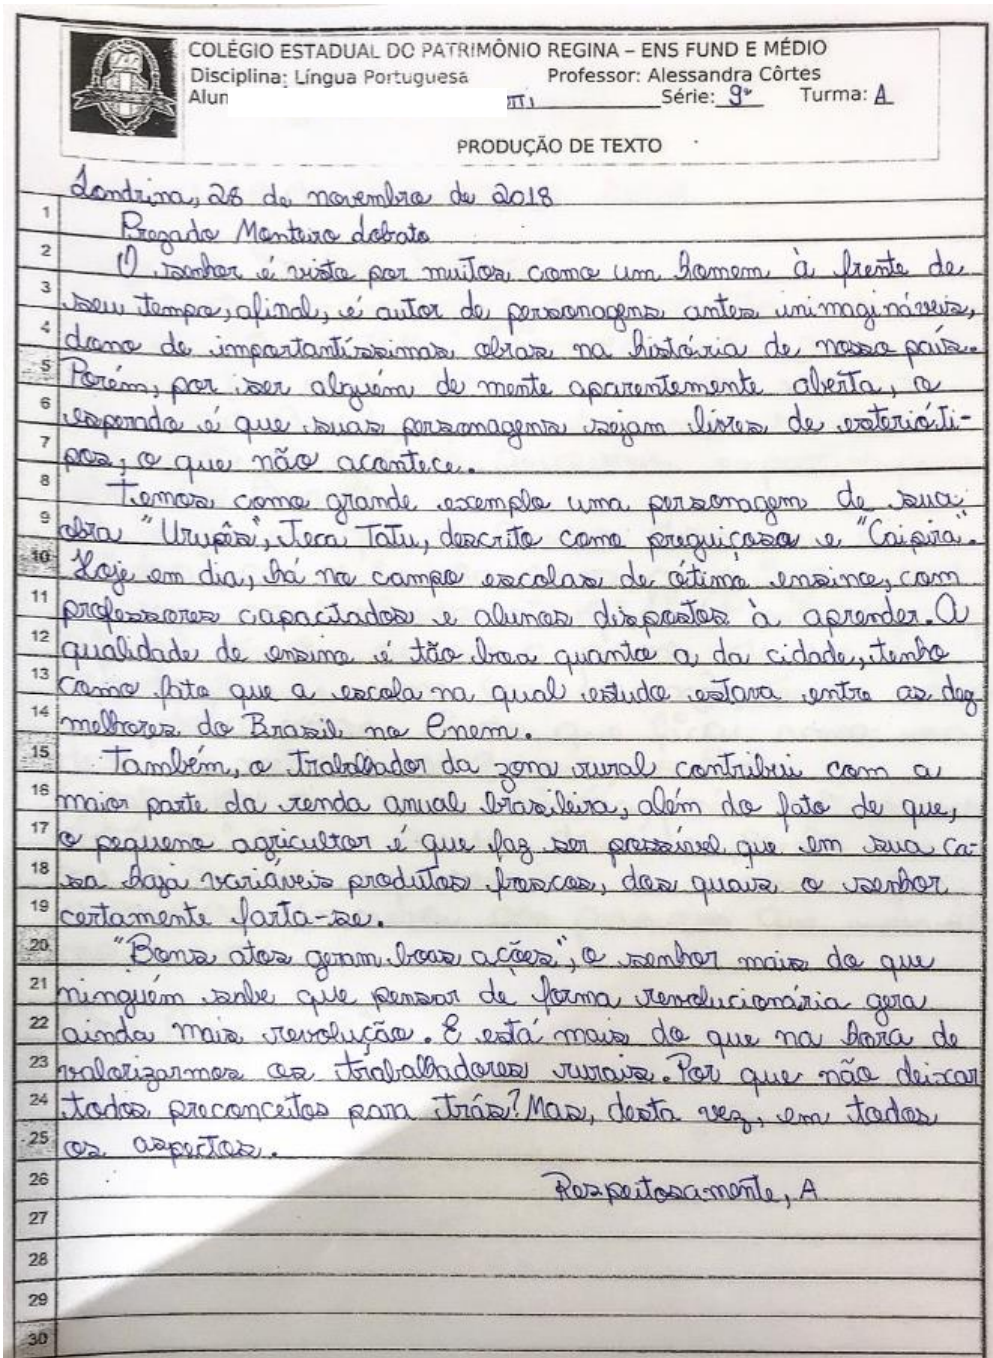 COLÉGIO ESTADUAL DO PATRIMÔNIO REGINA – ENS FUND E MÉDIO
Disciplina: Língua Portuguesa Professor: Alessandra Côrtes
Alun Série: 9º Turma: A
PRODUÇÃO DE TEXTO
Londrina, 28 de novembro de 2018
1 Prezado Monteiro Lobato
2 O senhor é visto por muitos como um homem à frente de
3 seu tempo, afinal, é autor de personagens antes inimagináveis,
4 dono de importantíssimas obras na história de nosso país.
5 Porém, por ser alguém de mente aparentemente aberta, o
6 esperado é que suas personagens sejam livres de esterióti-
7 pos, o que não acontece.
8 Temos como grande exemplo uma personagem de sua
9 obra "Urupês", Jeca Tatu, descrito como preguiçoso e "Caipira".
10 Hoje em dia, há no campo escolas de ótimo ensino, com
11 professores capacitados e alunos dispostos à aprender. A
12 qualidade de ensino é tão boa quanto a da cidade, tenho
13 como fato que a escola na qual estudo estava entre as dez
14 melhores do Brasil no Enem.
15 Também, o trabalhador da zona rural contribui com a
16 maior parte da renda anual brasileira, além do fato de que,
17 o pequeno agricultor é que faz ser possível que em sua ca-
18 sa haja variáveis produtos frescos, dos quais o senhor
19 certamente farta-se.
20 "Bons atos geram boas ações", o senhor mais do que
21 ninguém sabe que pensar de forma revolucionária gera
22 ainda mais revolução. E está mais do que na hora de
23 valorizarmos os trabalhadores rurais. Por que não deixar
24 todos preconceitos para trás? Mas, desta vez, em todos
25 os aspectos.
26 Respeitosamente, A
27
28
29
30